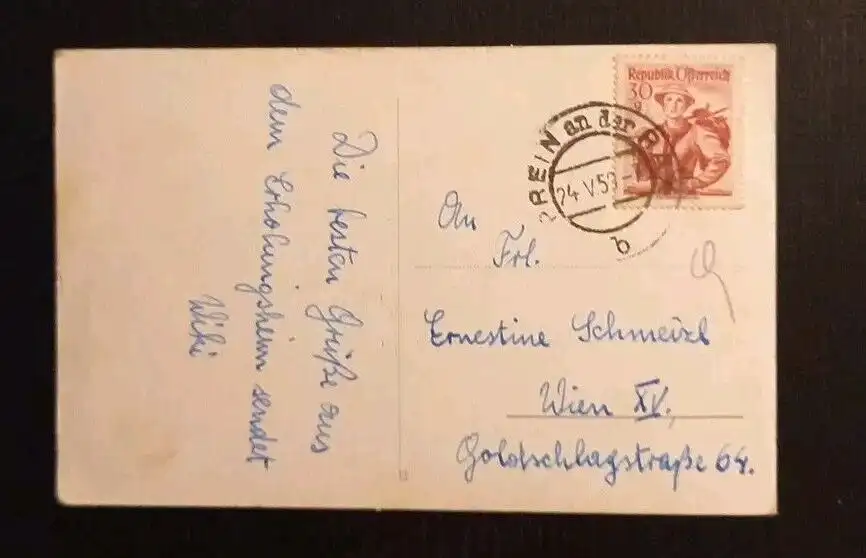 Die besten Grüße aus
dem Erholungsheim sendet
Wiki
Republik Österreich
30
g
PREIN an der RAX
24.V.53
b
An
Frl.
Ernestine Schmeizl
Wien XV.,
Goldschlagstraße 64.